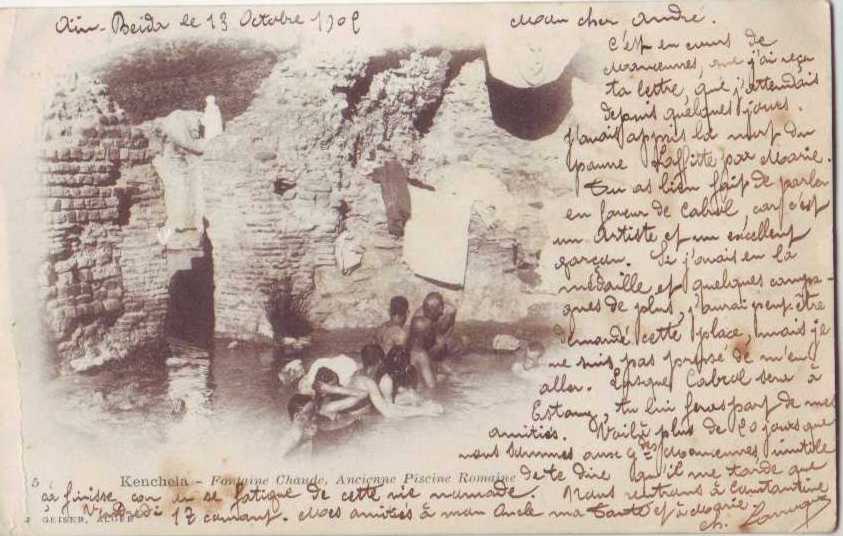 Aïn-Beida le 13 Octobre 190
Mon cher André.
C'est en cours de
manœuvres, que j'ai reçu
ta lettre, que j'attendais
depuis quelques jours.
J'avais appris la mort du
pauvre Laffitte par Marie.
Tu as bien fait de parler
en faveur de Cabrol, car c'est
un artiste et un excellent
garçon. Si j'avais eu la
médaille et quelques campa-
gnes de plus, j'aurai peut-être
demandé cette place, mais je
ne suis pas pressé de m'en
aller. Lorsque Cabrol sera à
Estang, tu lui feras part de mes
amitiés. Voilà plus de 20 jours que
nous sommes aux gdes manœuvres inutile
de te dire qu'il me tarde que
ça finisse car on se fatigue de cette vie nomade. Nous rentrons à Constantine
Vendredi 17 courant. Mes amitiés à mon Oncle ma Tante et à Marie.
Ch.
5 Kenchela - Fontaine Chaude, Ancienne Piscine Romaine
GEISER, ALGER